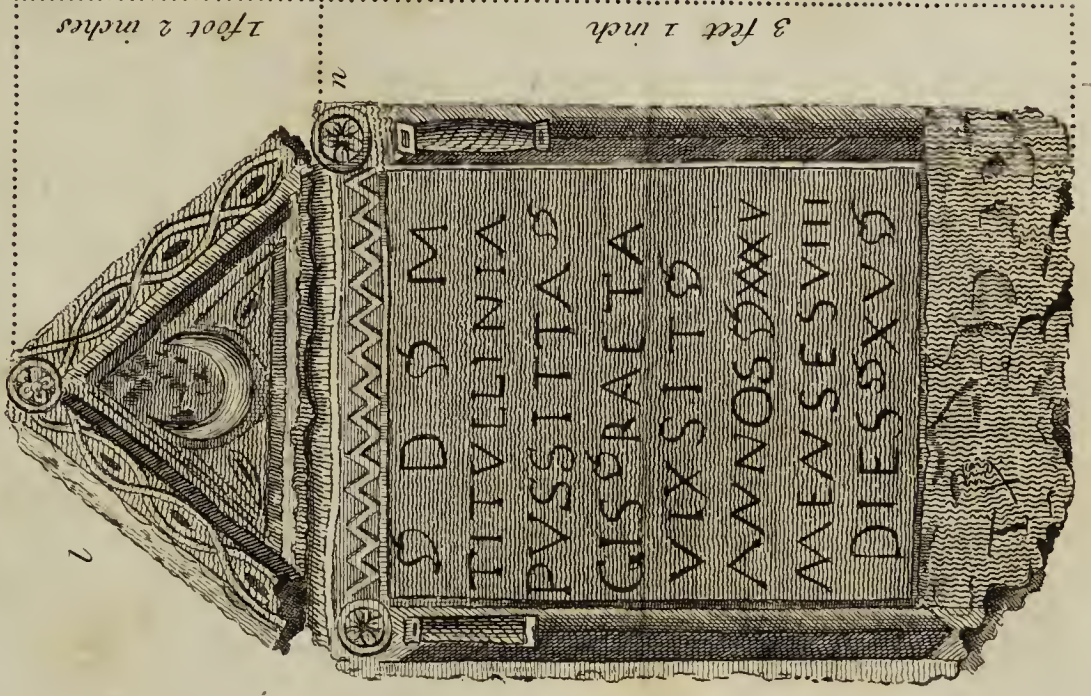 1 foot 2 inches
3 feet 1 inch
n
l
D M
TITVLLINIA
PVSSITTA
GIS RAETA
VIXSIT
ANNOS XXXV
MENSES VIII
DIES XV